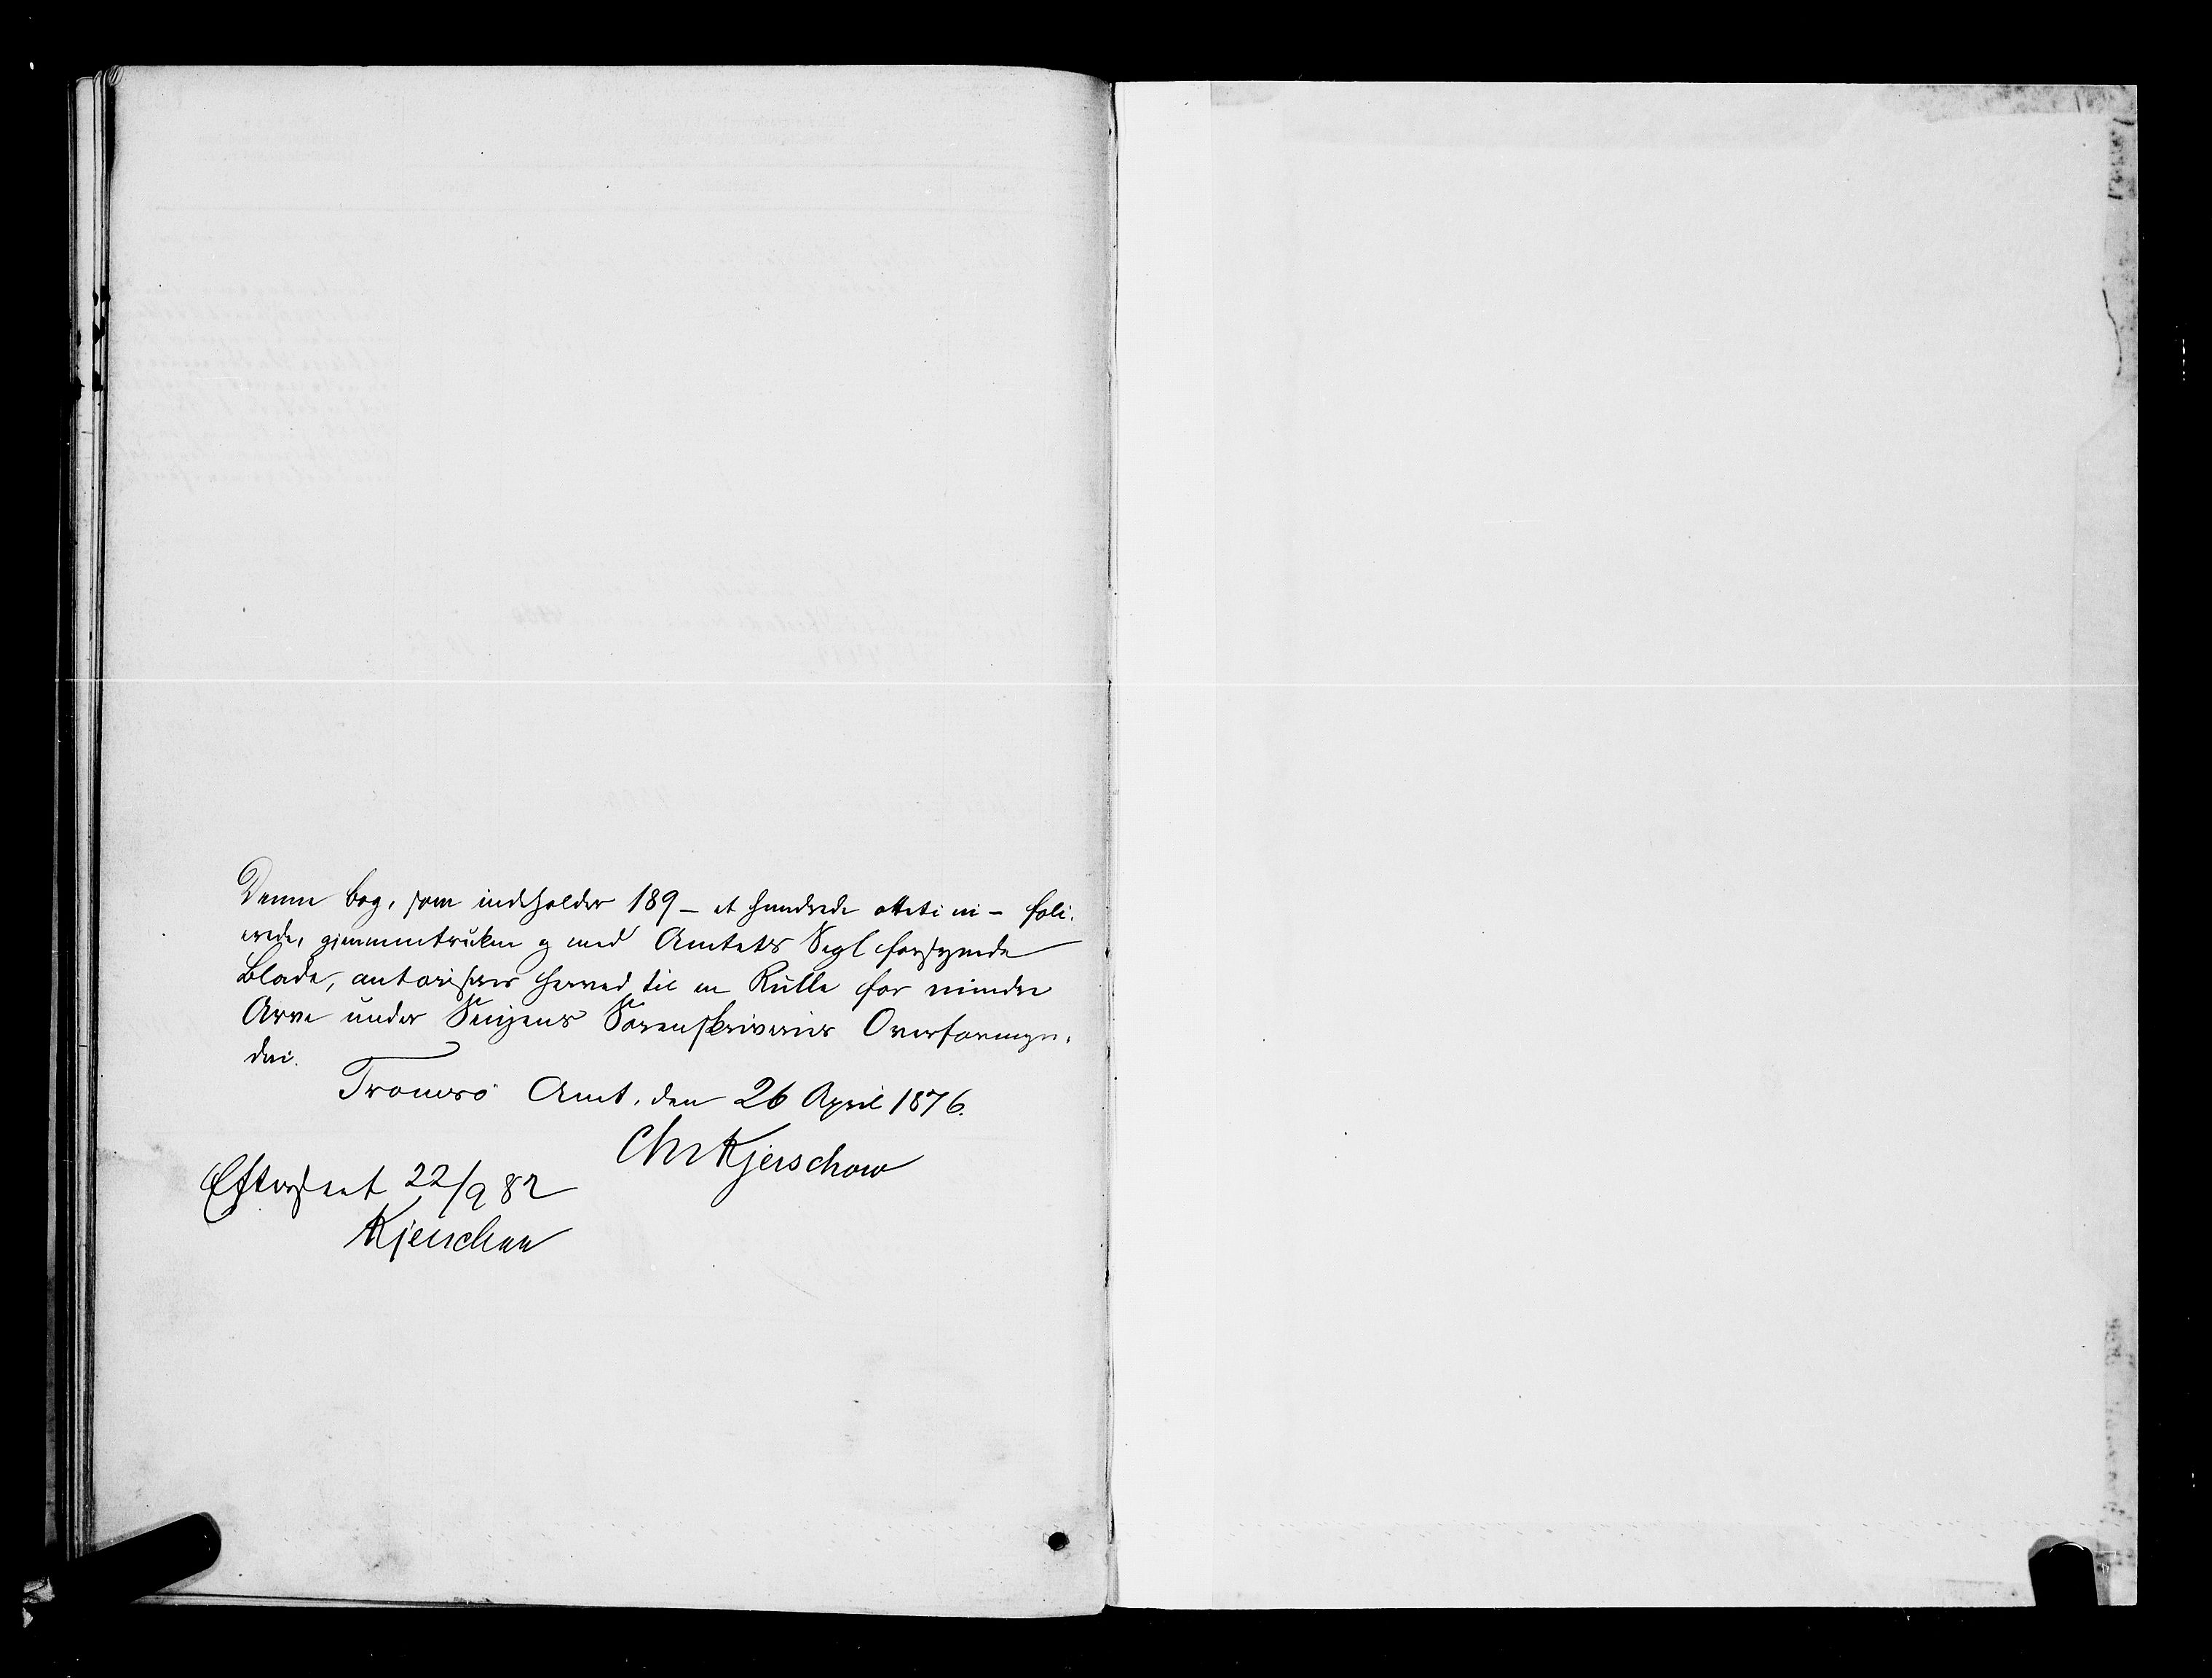 Denne bog, som indeholder 189 - et hundrede otteti ni - foli-
erede, gjennemtrukne og med Amtets Segl forsynede
Blade, autoriseres herved til en Rulle for mindre
Arve under Senjens Sorenskriveries Overformyn-
deri.
Tromsø Amt, den 26 April 1876.
Chr Kjerschow
Efterseet 22/9 82
Kjerschow